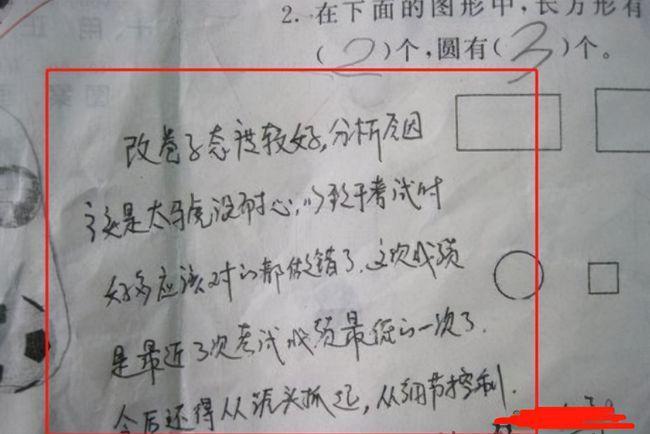 2. 在下面的图形中，长方形有
（2）个，圆有（3）个。
改卷子态度较好，分析原因
主要是太马虎没耐心，以致于考试时
好多应该对的都做错了，这次成绩
是最近了次考试成绩最低的一次了．
今后还得从源头抓起，从细节控制．